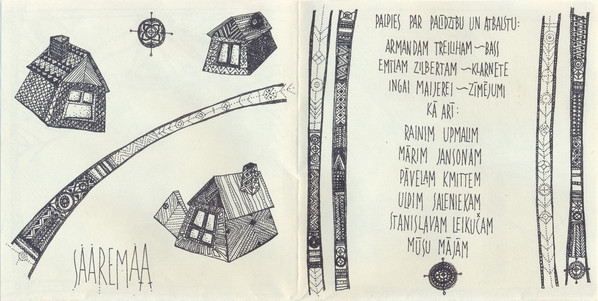 SÄÄREMAA
PALDIES PAR PALĪDZĪBU UN ATBALSTU:
ARMANDAM TREILIHAM ~ BASS
EMĪLAM ZILBERTAM ~ KLARNETE
INGAI MAIJEREI ~ ZĪMĒJUMI
KĀ ARĪ:
RAINIM UPMALIM
MĀRIM JANSONAM
PĀVELAM KMITTEM
ULDIM SALENIEKAM
STANISLAVAM LEIKUČAM
MŪSU MĀJĀM